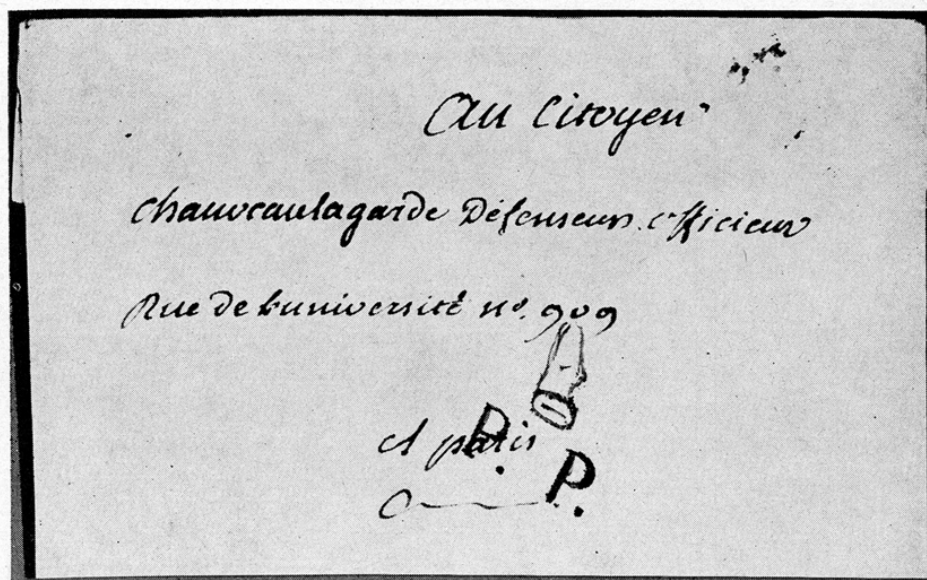 Au Citoyen
chauveaulagarde Défenseur officieux
Rue de l'université no. 909
A paris
P. P.